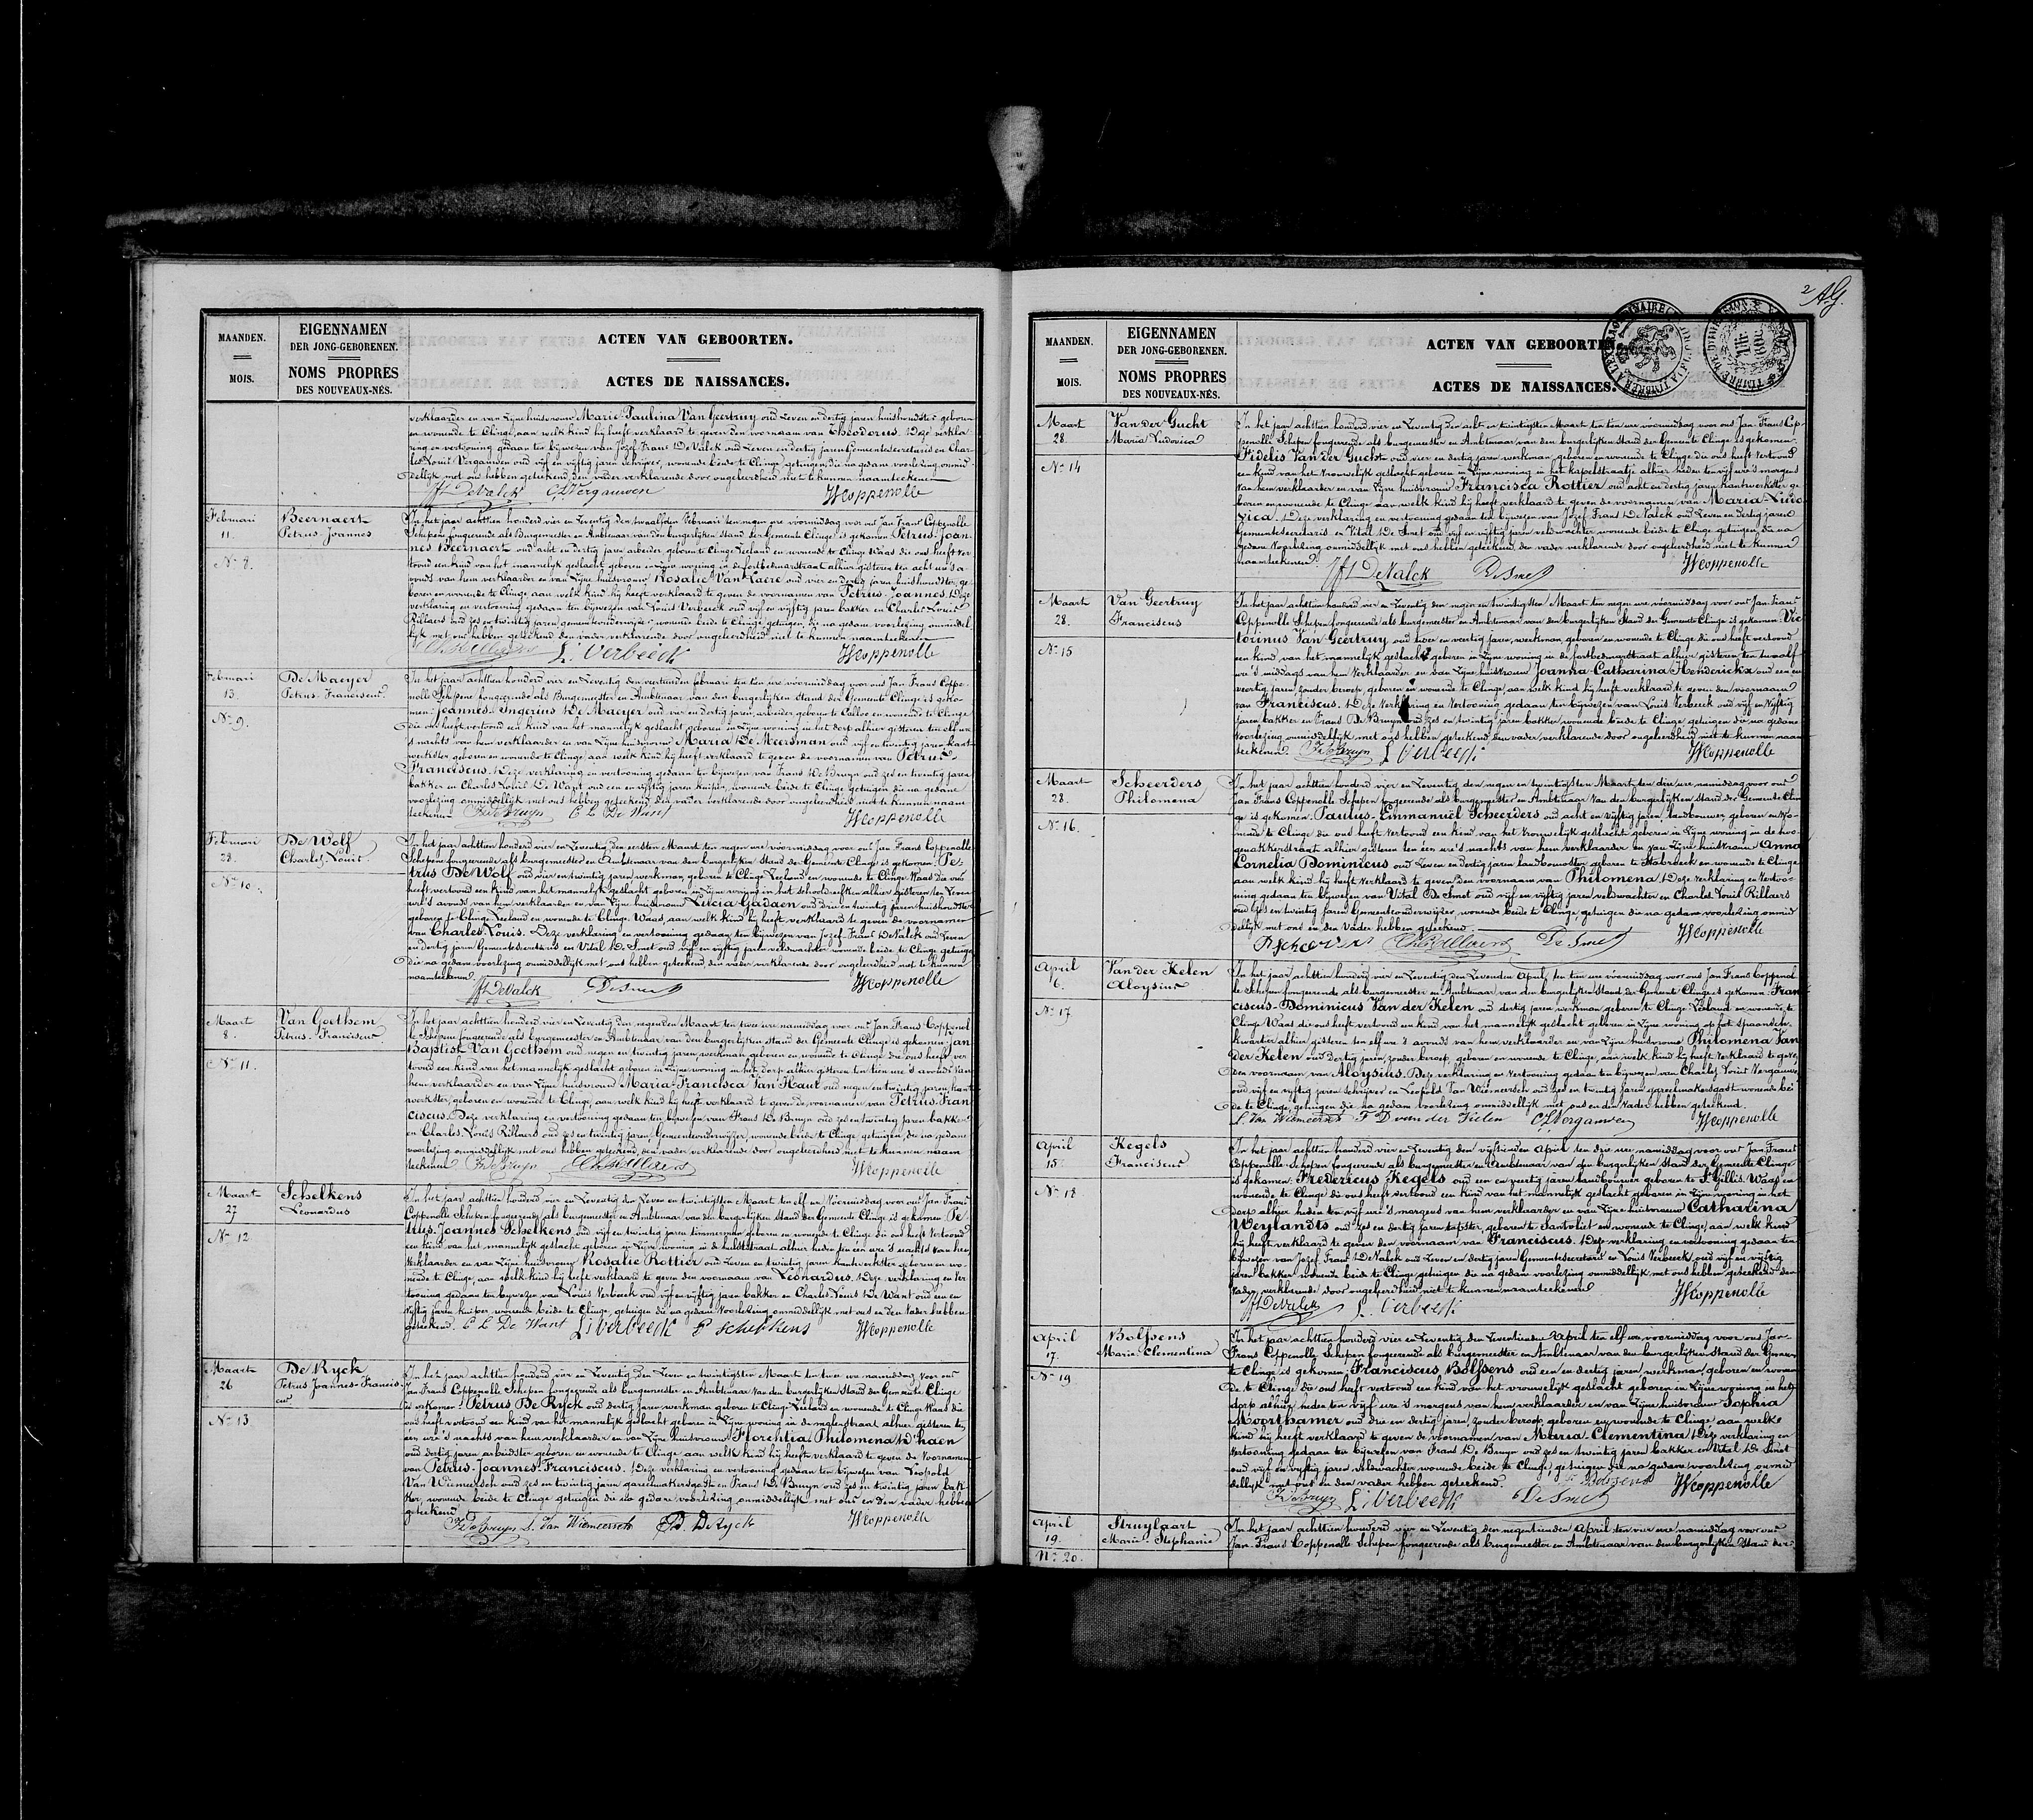 MAANDEN.
MOIS.
EIGENNAMEN
DER JONG-GEBORENEN.
NOMS PROPRES
DES NOUVEAUX-NÉS.
ACTEN VAN GEBOORTEN.
ACTES DE NAISSANCES.
verklaarder en van zijne huisvrouw Marie Paulina Van Geertruy oud zeven en dertig jaren huishoudster geboren
en wonende te Clinge, aan welk kind hij heeft verklaard te geven den voornaam van Theodorus. Deze verkla-
ring en vertooning gedaan ten bijwezen van Jozef Frans De Valck oud zeven en dertig jaren Gemeentesecretaris en Char-
les Louis Vergauwen oud vijf en vijftig jaren schrijver, wonende beide te Clinge, getuigen die na gedane voorlezing onmid-
dellijk met ons hebben geteekend, den vader verklarende door ongeleerdheid niet te kunnen naamteekenen
Jf De Valck CL Vergauwen JF Coppenolle
Februari
11.
N° 8.
Beernaert
Petrus Joannes
In het jaar achttien honderd vier en zeventig den twaalfden Februari ten negen ure voormiddag voor ons Jan Frans Coppenolle
Schepene fongeerende als Burgemeester en Ambtenaar van den burgerlijken stand der Gemeente Clinge is gekomen Petrus Joan-
nes Beernaert oud acht en dertig jaren arbeider geboren te Clinge Zeeland en wonende te Clinge Waas die ons heeft ver-
toond een kind van het mannelijk geslacht geboren in zijne woning in de fortbedmarstraat alhier gisteren ten acht ure 's a-
vonds van hem verklaarder en van zijne huisvrouw Rosalie Van Laere oud vier en dertig jaren huishoudster, ge-
boren en wonende te Clinge aan welk kind hij heeft verklaard te geven de voornamen van Petrus-Joannes. Deze
verklaring en vertooning gedaan ten bijwezen van Louis Verbeeck oud vijf en vijftig jaren bakker en Charles Louis
Rillaers oud zes en twintig jaren gemeenteonderwijzer, wonende beide te Clinge, getuigen die na gedane voorlezing onmiddel-
lijk met ons hebben geteekend den vader verklarende door ongeleerdheid niet te kunnen naamteekenen
Ch Rillaers L. Verbeeck JF Coppenolle
Februari
13
N° 9.
De Maeyer
Petrus Franciscus
In het jaar achttien honderd vier en zeventig den veertienden februari ten tien ure voormiddag voor ons Jan Frans Coppe-
nolle Schepene fongeerende als Burgemeester en Ambtenaar van den burgerlijken stand der Gemeente Clinge is geko-
men: Joannes Ingerius De Maeyer oud vier en dertig jaren arbeider geboren te Calloo en wonende te Clinge
die ons heeft vertoond een kind van het mannelijk geslacht geboren in zijne woning in het dorp alhier gisteren ten elf ure
's nachts van hem verklaarder en van zijne huisvrouw Maria De Meersman oud vijf en twintig jaren kant-
werkster geboren en wonende te Clinge aan welk kind hij heeft verklaard te geven de voornamen van Petrus-
Franciscus. Deze verklaring en vertooning gedaan ten bijwezen van Frans De Bruyn oud zes en twintig jaren
bakker en Charles Louis De Want oud een en vijftig jaren kuiper, wonende beide te Clinge getuigen die na gedane
voorlezing onmiddellijk met ons hebben geteekend den vader verklarende door ongeleerdheid niet te kunnen naam
teekenen F De Bruyn C L De Want JF Coppenolle
Februari
28.
N° 10.
De Wolf
Charles Louis
In het jaar achttien honderd vier en zeventig den eersten Maart ten negen ure voormiddag voor ons Jan Frans Coppenolle
Schepene fongeerende als burgemeester en Ambtenaar van den burgerlijken stand der Gemeente Clinge is gekomen: Pe-
trus De Wolf oud vier en twintig jaren werkman, geboren te Clinge Zeeland en wonende te Clinge Waas die ons
heeft vertoond een kind van het mannelijk geslacht geboren in zijne woning in het alhier gisteren ten zeven
ure 's avonds van hem verklaarder en van zijne huisvrouw Lucia Gadaen oud drie en twintig jaren huishoudster
geboren te Clinge Zeeland en wonende te Clinge Waas, aan welk kind hij heeft verklaard te geven de voornamen
van Charles Louis. Deze verklaring en vertooning gedaan ten bijwezen van Jozef Frans De Valck oud zeven
en dertig jaren Gemeentesecretaris en Vital De Smet oud vijf en vijftig jaren veldwachter wonende beide te Clinge getuigen
die na gedane voorlezing onmiddellijk met ons hebben geteekend, den vader verklarende door ongeleerdheid niet te kunnen
naamteekenen
Jf De Valck De Smet JF Coppenolle
Maart
8.
N° 11.
Van Goethem
Petrus Franciscus
In het jaar achttien honderd vier en zeventig den negenden Maart ten twee ure namiddag voor ons Jan Frans Coppenol-
le Schepene fongeerende als burgemeester en Ambtenaar van den burgerlijken stand der Gemeente Clinge is gekomen: Jan
Baptist Van Goethem oud negen en twintig jaren, werkman geboren en wonende te Clinge die ons heeft ver-
toond een kind van het mannelijk geslacht geboren in zijne woning in het dorp alhier gisteren ten tien ure 's avonds van
hem verklaarder en van zijne huisvrouw Maria-Francisca Van Haut oud negen en twintig jaren, kant-
werkster, geboren en wonende te Clinge, aan welk kind hij heeft verklaard te geven de voornamen van Petrus-Fran-
ciscus. Deze verklaring en vertooning gedaan ten bijwezen van Frans De Bruyn oud zes en twintig jaren bakker
en Charles Louis Rillaers oud zes en twintig jaren Gemeenteonderwijzer, wonende beide te Clinge, getuigen die na gedane
voorlezing onmiddellijk met ons hebben geteekend, den vader verklarende door ongeleerdheid niet te kunnen naam
teekenen F De Bruyn Ch Rillaers JF Coppenolle
Maart
27
N° 12
Schelkens
Leonardus
In het jaar achttien honderd vier en zeventig den zeven en twintigsten Maart ten elf ure Voormiddag voor ons Jan Frans
Coppenolle Schepene fongeerende als burgemeester en Ambtenaar van den burgerlijken stand der Gemeente Clinge is gekomen Pe-
trus Joannes Schelkens oud vijf en twintig jaren timmerman geboren en wonende te Clinge die ons heeft Vertoond
een kind van het mannelijk geslacht geboren in zijne woning in de hulststraat alhier heden ten een ure 's nachts van hem
Verklaarder en van zijne huisvrouw Rosalie Rottier oud zeven en twintig jaren kantwerkster geboren en wo-
nende te Clinge, aan welk kind hij heeft verklaard te geven den voornaam van Leonardus. Deze verklaring en Ver-
tooning gedaan ten bijwezen van Louis Verbeeck oud vijf en vijftig jaren bakker en Charles Louis De Want oud een en
Vijftig jaren kuiper wonende beide te Clinge, getuigen die na gedane Voorlezing onmiddellijk met ons en den Vader hebben
geteekend. C L De Want L. Verbeeck P Schelkens JF Coppenolle
Maart
26
N° 13
De Ryck
Petrus Joannes-Francis-
cus
In het jaar achttien honderd vier en zeventig den zeven en twintigsten Maart ten twee ure namiddag Voor ons
Jan Frans Coppenolle Schepen fongeerende als burgemeester en Ambtenaar Van den burgerlijken Stand der Gemeente Clinge
is gekomen: Petrus De Ryck oud dertig jaren werkman geboren te Clinge Zeeland en wonende te Clinge Waas die
ons heeft vertoond een kind van het mannelijk geslacht geboren in zijne woning in de alhier gisteren ten
een ure 's nachts van hem verklaarder en van zijne huisvrouw Florentia Philomena D'haen
oud dertig jaren arbeidster geboren en wonende te Clinge aan welk kind hij heeft verklaard te geven de Voornamen
van Petrus-Joannes-Franciscus. Deze verklaring en vertooning gedaan ten bijwezen van Leopold
Van Wiemeersch oud zes en twintig jaren gareelmakersgast en Frans De Bruyn oud zes en twintig jaren bak-
ker, wonende beide te Clinge getuigen die na gedane voorlezing onmiddellijk met ons en den vader hebben
geteekend
F De Bruyn L. Van Wiemeersch PD De Ryck JF Coppenolle
2 AG.
MAANDEN.
MOIS.
EIGENNAMEN
DER JONG-GEBORENEN.
NOMS PROPRES
DES NOUVEAUX-NÉS.
ACTEN VAN GEBOORTEN.
ACTES DE NAISSANCES.
Maart
28.
N° 14
Van der Gucht
Maria Ludovica
In het jaar achttien honderd vier en zeventig den acht en twintigsten Maart ten tien ure voormiddag voor ons Jan Frans Cop-
penolle Schepen fongeerende als burgemeester en Ambtenaar van den burgerlijken stand der Gemeente Clinge is gekomen:
Fidelis Van der Gucht oud vier en dertig jaren werkman geboren en wonende te Clinge die ons heeft Vertoond
een kind van het Vrouwelijk geslacht geboren in zijne woning in het kapelstraatje alhier heden ten vijf ure 's morgens
Van hem verklaarder en van zijne huisvrouw Francisca Rottier oud acht en dertig jaren kantwerkster ge-
boren en wonende te Clinge aan welk kind hij heeft verklaard te geven de voornamen van Maria-Ludo-
vica. Deze verklaring en vertooning gedaan ten bijwezen van Jozef Frans De Valck oud zeven en dertig jaren
Gemeentesecretaris en Vital De Smet oud vijf en vijftig jaren veldwachter wonende beide te Clinge getuigen die na
gedane Voorlezing onmiddellijk met ons hebben geteekend den vader verklarende door ongeleerdheid niet te kunnen
naamteekenen
Jf De Valck De Smet JF Coppenolle
Maart
28.
N° 15
Van Geertruy
Franciscus
In het jaar achttien honderd vier en zeventig den negen en twintigsten Maart ten negen ure voormiddag voor ons Jan Frans
Coppenolle Schepen fongeerende als burgemeester en Ambtenaar van den burgerlijken Stand der Gemeente Clinge is gekomen: Vic-
torinus Van Geertruy oud twee en veertig jaren, werkman, geboren en wonende te Clinge die ons heeft vertoond
een kind van het mannelijk geslacht geboren in zijne woning in de fortbedmarstraat alhier gisteren ten twaalf
ure 's middags van hem Verklaarder en van zijne huisvrouw Joanna-Catharina Henderickx oud een en
veertig jaren zonder beroep, geboren en wonende te Clinge aan welk kind hij heeft verklaard te geven den voornaam
van Franciscus. Deze Verklaring en Vertooning gedaan ten bijwezen van Louis Verbeeck oud vijf en Vijftig
jaren bakker en Frans De Bruyn oud zes en twintig jaren bakker wonende beide te Clinge getuigen die na gedane
Voorlezing onmiddellijk met ons hebben geteekend, den vader verklarende door ongeleerdheid niet te kunnen naam
teekenen F De Bruyn L. Verbeeck JF Coppenolle
Maart
28.
N° 16.
Scheerders
Philomena
In het jaar achttien honderd vier en zeventig den negen en twintigsten Maart ten drie ure namiddag voor ons
Jan Frans Coppenolle Schepen fongeerende als burgemeester en Ambtenaar Van den burgerlijken stand der Gemeente Clin-
ge is gekomen: Paulus-Emmanuël Scheerders oud acht en vijftig jaren, landbouwer geboren en wo-
nende te Clinge die ons heeft Vertoond een kind van het Vrouwelijk geslacht geboren in zijne woning in de hoo-
genakkerstraat alhier gisteren ten een ure 's nachts van hem verklaarder en van zijne huisvrouw Anna
Cornelia Dominicus oud zeven en dertig jaren landbouwster, geboren te Stabroeck en wonende te Clinge
aan welk kind hij heeft Verklaard te geven den voornaam van Philomena. Deze Verklaring en Vertoo-
ning gedaan ten bijwezen van Vital De Smet oud vijf en vijftig jaren veldwachter en Charles Louis Rillaers
oud zes en twintig jaren Gemeenteonderwijzer, wonende beide te Clinge, getuigen die na gedane voorlezing onmid-
dellijk met ons en den Vader hebben geteekend.
P Scheerders Ch Rillaers De Smet JF Coppenolle
April
6.
N° 17
Van der Kelen
Aloysius
In het jaar achttien honderd vier en zeventig den zevenden April, ten tien ure voormiddag voor ons Jan Frans Coppenol-
le Schepen fongeerende als burgemeester en Ambtenaar van den burgerlijken Stand der Gemeente Clinge is gekomen: Fran-
ciscus-Dominicus Van der Kelen oud dertig jaren werkman geboren te Clinge Zeeland en wonende te
Clinge Waas die ons heeft vertoond een kind van het mannelijk geslacht geboren in zijne woning op het spaansch-
kwartier alhier gisteren ten elf ure 's avonds van hem verklaarder en van zijne huisvrouw Philomena Van
der Kelen oud dertig jaren, zonder beroep, geboren en wonende te Clinge, aan welk kind hij heeft verklaard te geven
den voornaam van Aloysius. Deze verklaring en Vertooning gedaan ten bijwezen van Charles Louis Vergauwen
oud vijf en vijftig jaren schrijver en Leopold Van Wiemeersch oud zes en twintig jaren gareelmakersgast wonende bei-
de te Clinge, getuigen die na gedane voorlezing onmiddellijk met ons en den Vader hebben geteekend.
L. Van Wiemeersch F D van der Kelen CL Vergauwen JF Coppenolle
April
15
N° 18
Kegels
Franciscus
In het jaar achttien honderd vier en zeventig den vijftienden April ten drie ure namiddag voor ons Jan Frans
Coppenolle Schepen fongeerende als burgemeester en Ambtenaar van den burgerlijken stand der Gemeente Clinge
is gekomen: Fredericus Kegels oud een en veertig jaren landbouwer geboren te St Gillis Waas en
wonende te Clinge die ons heeft vertoond een kind van het mannelijk geslacht geboren in zijne woning in het
dorp alhier heden ten vijf ure 's morgens van hem verklaarder en van zijne huisvrouw Catharina
Weylandts oud zes en dertig jaren tapster, geboren te Santvliet en wonende te Clinge, aan welk kind
hij heeft verklaard te geven den voornaam van Franciscus. Deze verklaring en vertooning gedaan ten
bijwezen van Jozef Frans De Valck oud zeven en dertig jaren Gemeentesecretaris en Louis Verbeeck oud vijf en vijftig
jaren bakker wonende beide te Clinge getuigen die na gedane voorlezing onmiddellijk met ons hebben geteekend den
Vader verklarende door ongeleerdheid niet te kunnen naamteekenen
Jf De Valck L. Verbeeck JF Coppenolle
April
17.
N° 19
Bolssens
Marie Clementina
In het jaar achttien honderd vier en zeventig den zeventienden April ten elf ure voormiddag voor ons Jan-
Frans Coppenolle Schepen fongeerende als burgemeester en Ambtenaar van den burgerlijken stand der Gemeen-
te Clinge is gekomen: Franciscus Bolssens oud een en dertig jaren, werkman, geboren en wonen-
de te Clinge die ons heeft vertoond een kind van het vrouwelijk geslacht geboren in zijne woning in het
dorp alhier, heden ten vijf ure 's morgens van hem verklaarder en van zijne huisvrouw Sophia
Moorthamer oud drie en dertig jaren, zonder beroep, geboren en wonende te Clinge, aan welke
kind hij heeft verklaard te geven de voornamen van Maria-Clementina. Deze verklaring en
Vertooning gedaan ten bijwezen van Frans De Bruyn oud zes en twintig jaren bakker en Vital De Smet
oud vijf en vijftig jaren veldwachter wonende beide te Clinge, getuigen die na gedane voorlezing onmid-
dellijk met ons en den vader hebben geteekend. F. Bolssens JF Coppenolle
F De Bruyn L. Verbeeck De Smet
April
19.
N° 20.
Struylaart
Marie Stephanie
In het jaar achttien honderd vier en zeventig den negentienden April ten vier ure namiddag voor ons
Jan Frans Coppenolle Schepen fongeerende als burgemeester en Ambtenaar van den burgerlijken Stand der